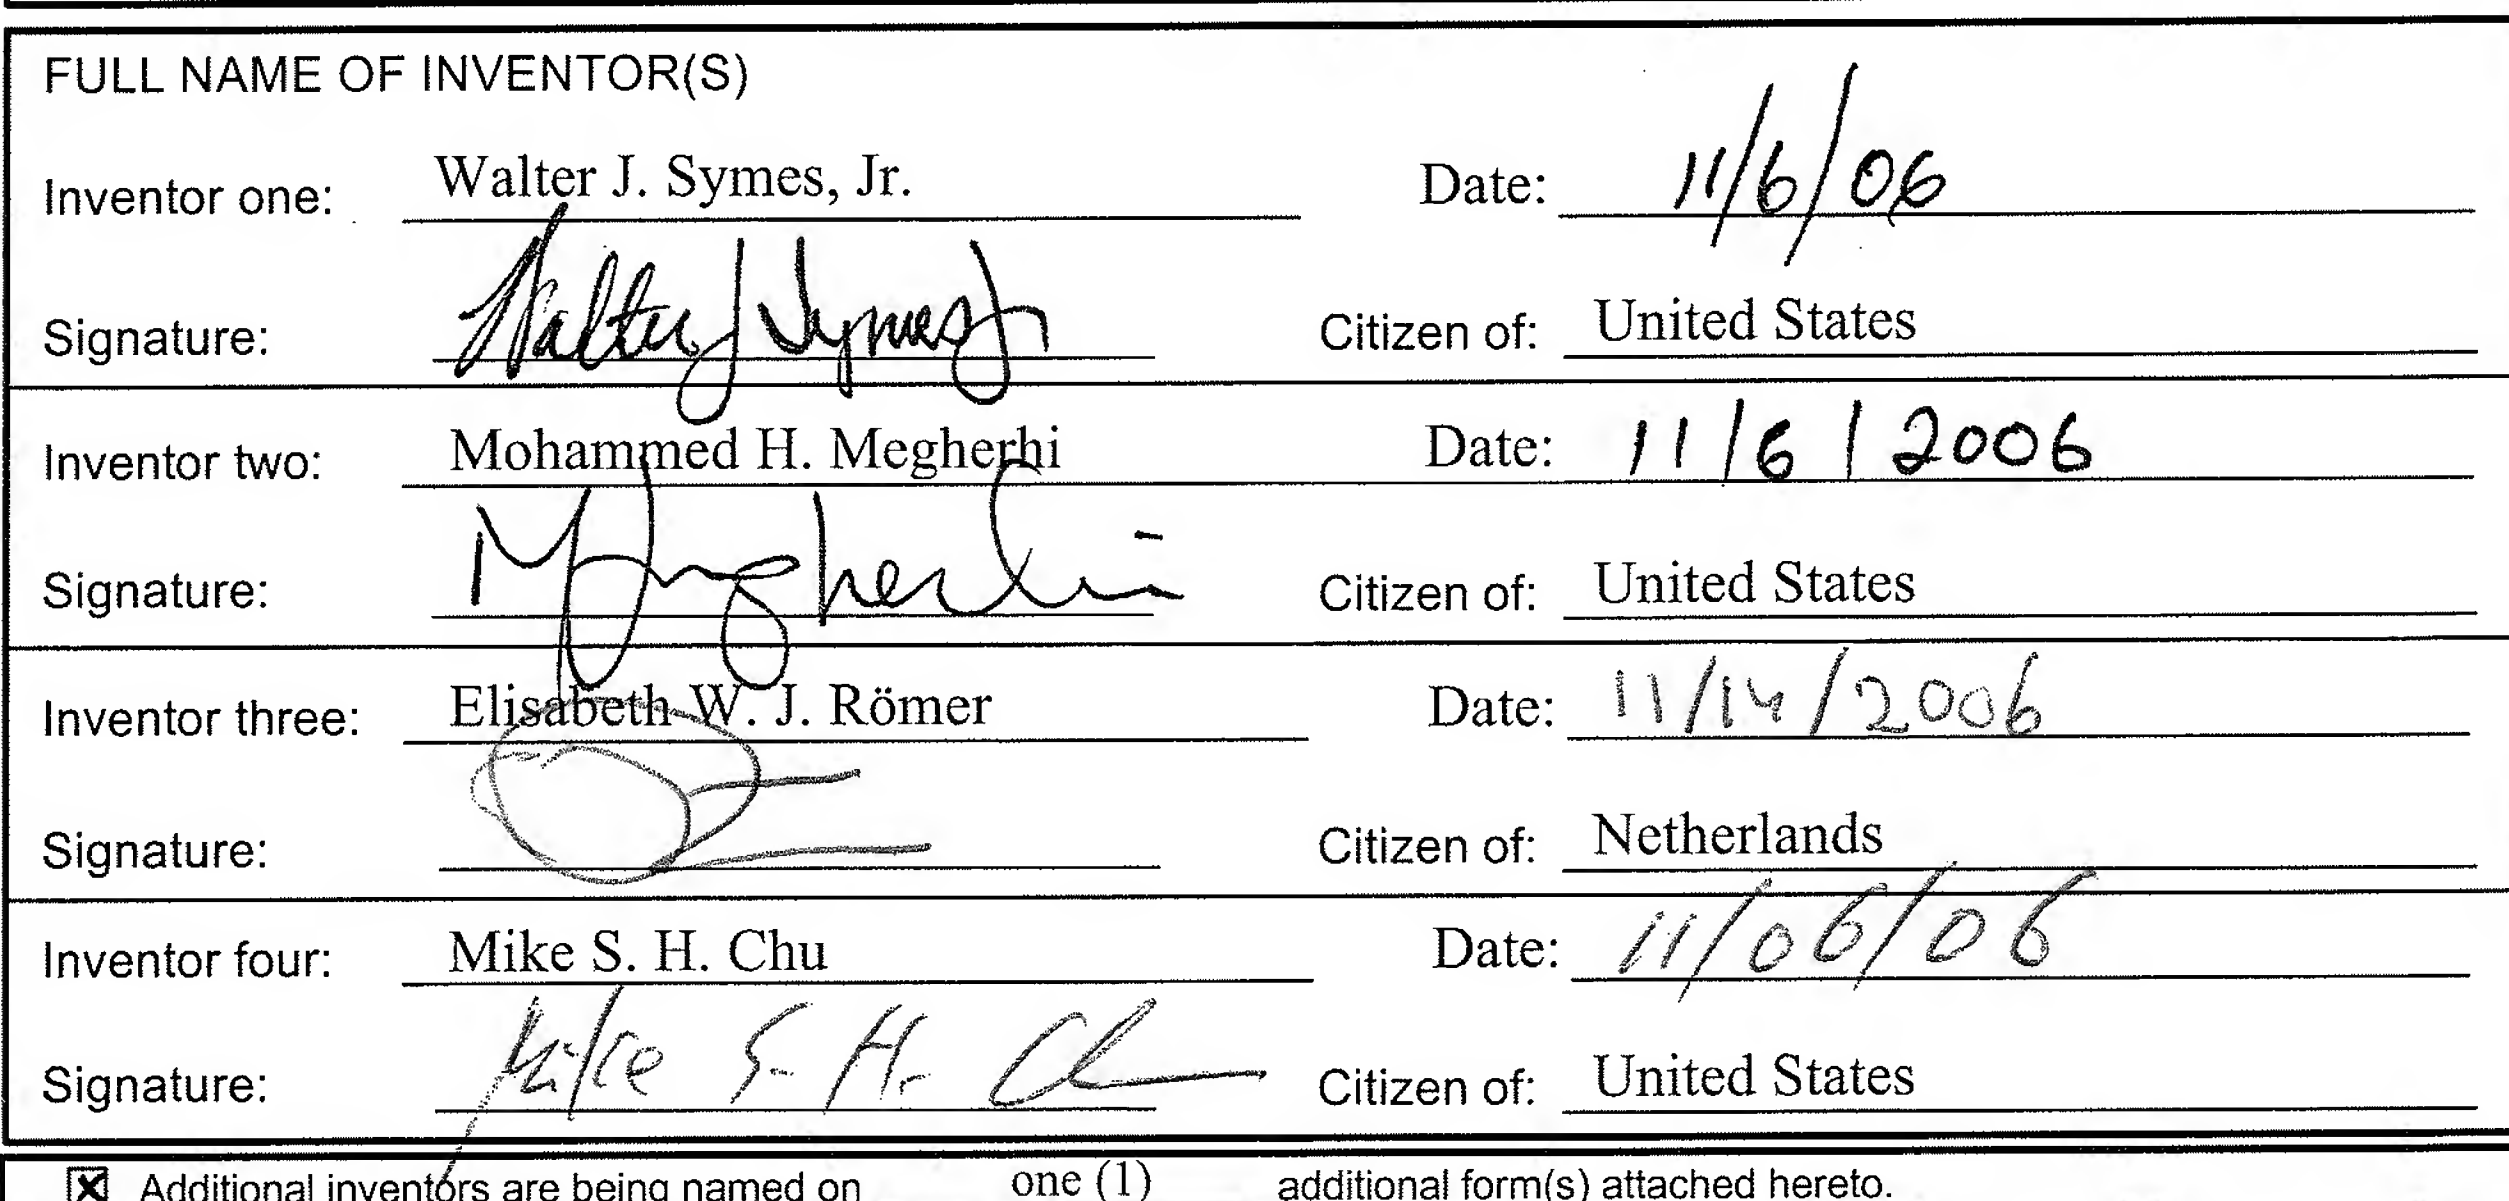 FULL NAME OF INVENTOR(S)
Inventor one: Walter J. Symes, Jr. Date: 11/6/06
Signature: Walter J Symes Jr Citizen of: United States
Inventor two: Mohammed H. Megherhi Date: 11/6/2006
Signature: Megherhi Citizen of: United States
Inventor three: Elisabeth W. J. Römer Date: 11/14/2006
Signature: Citizen of: Netherlands
Inventor four: Mike S. H. Chu Date: 11/06/06
Signature: Mike S. H. Chu Citizen of: United States
☒ Additional inventors are being named on one (1) additional form(s) attached hereto.